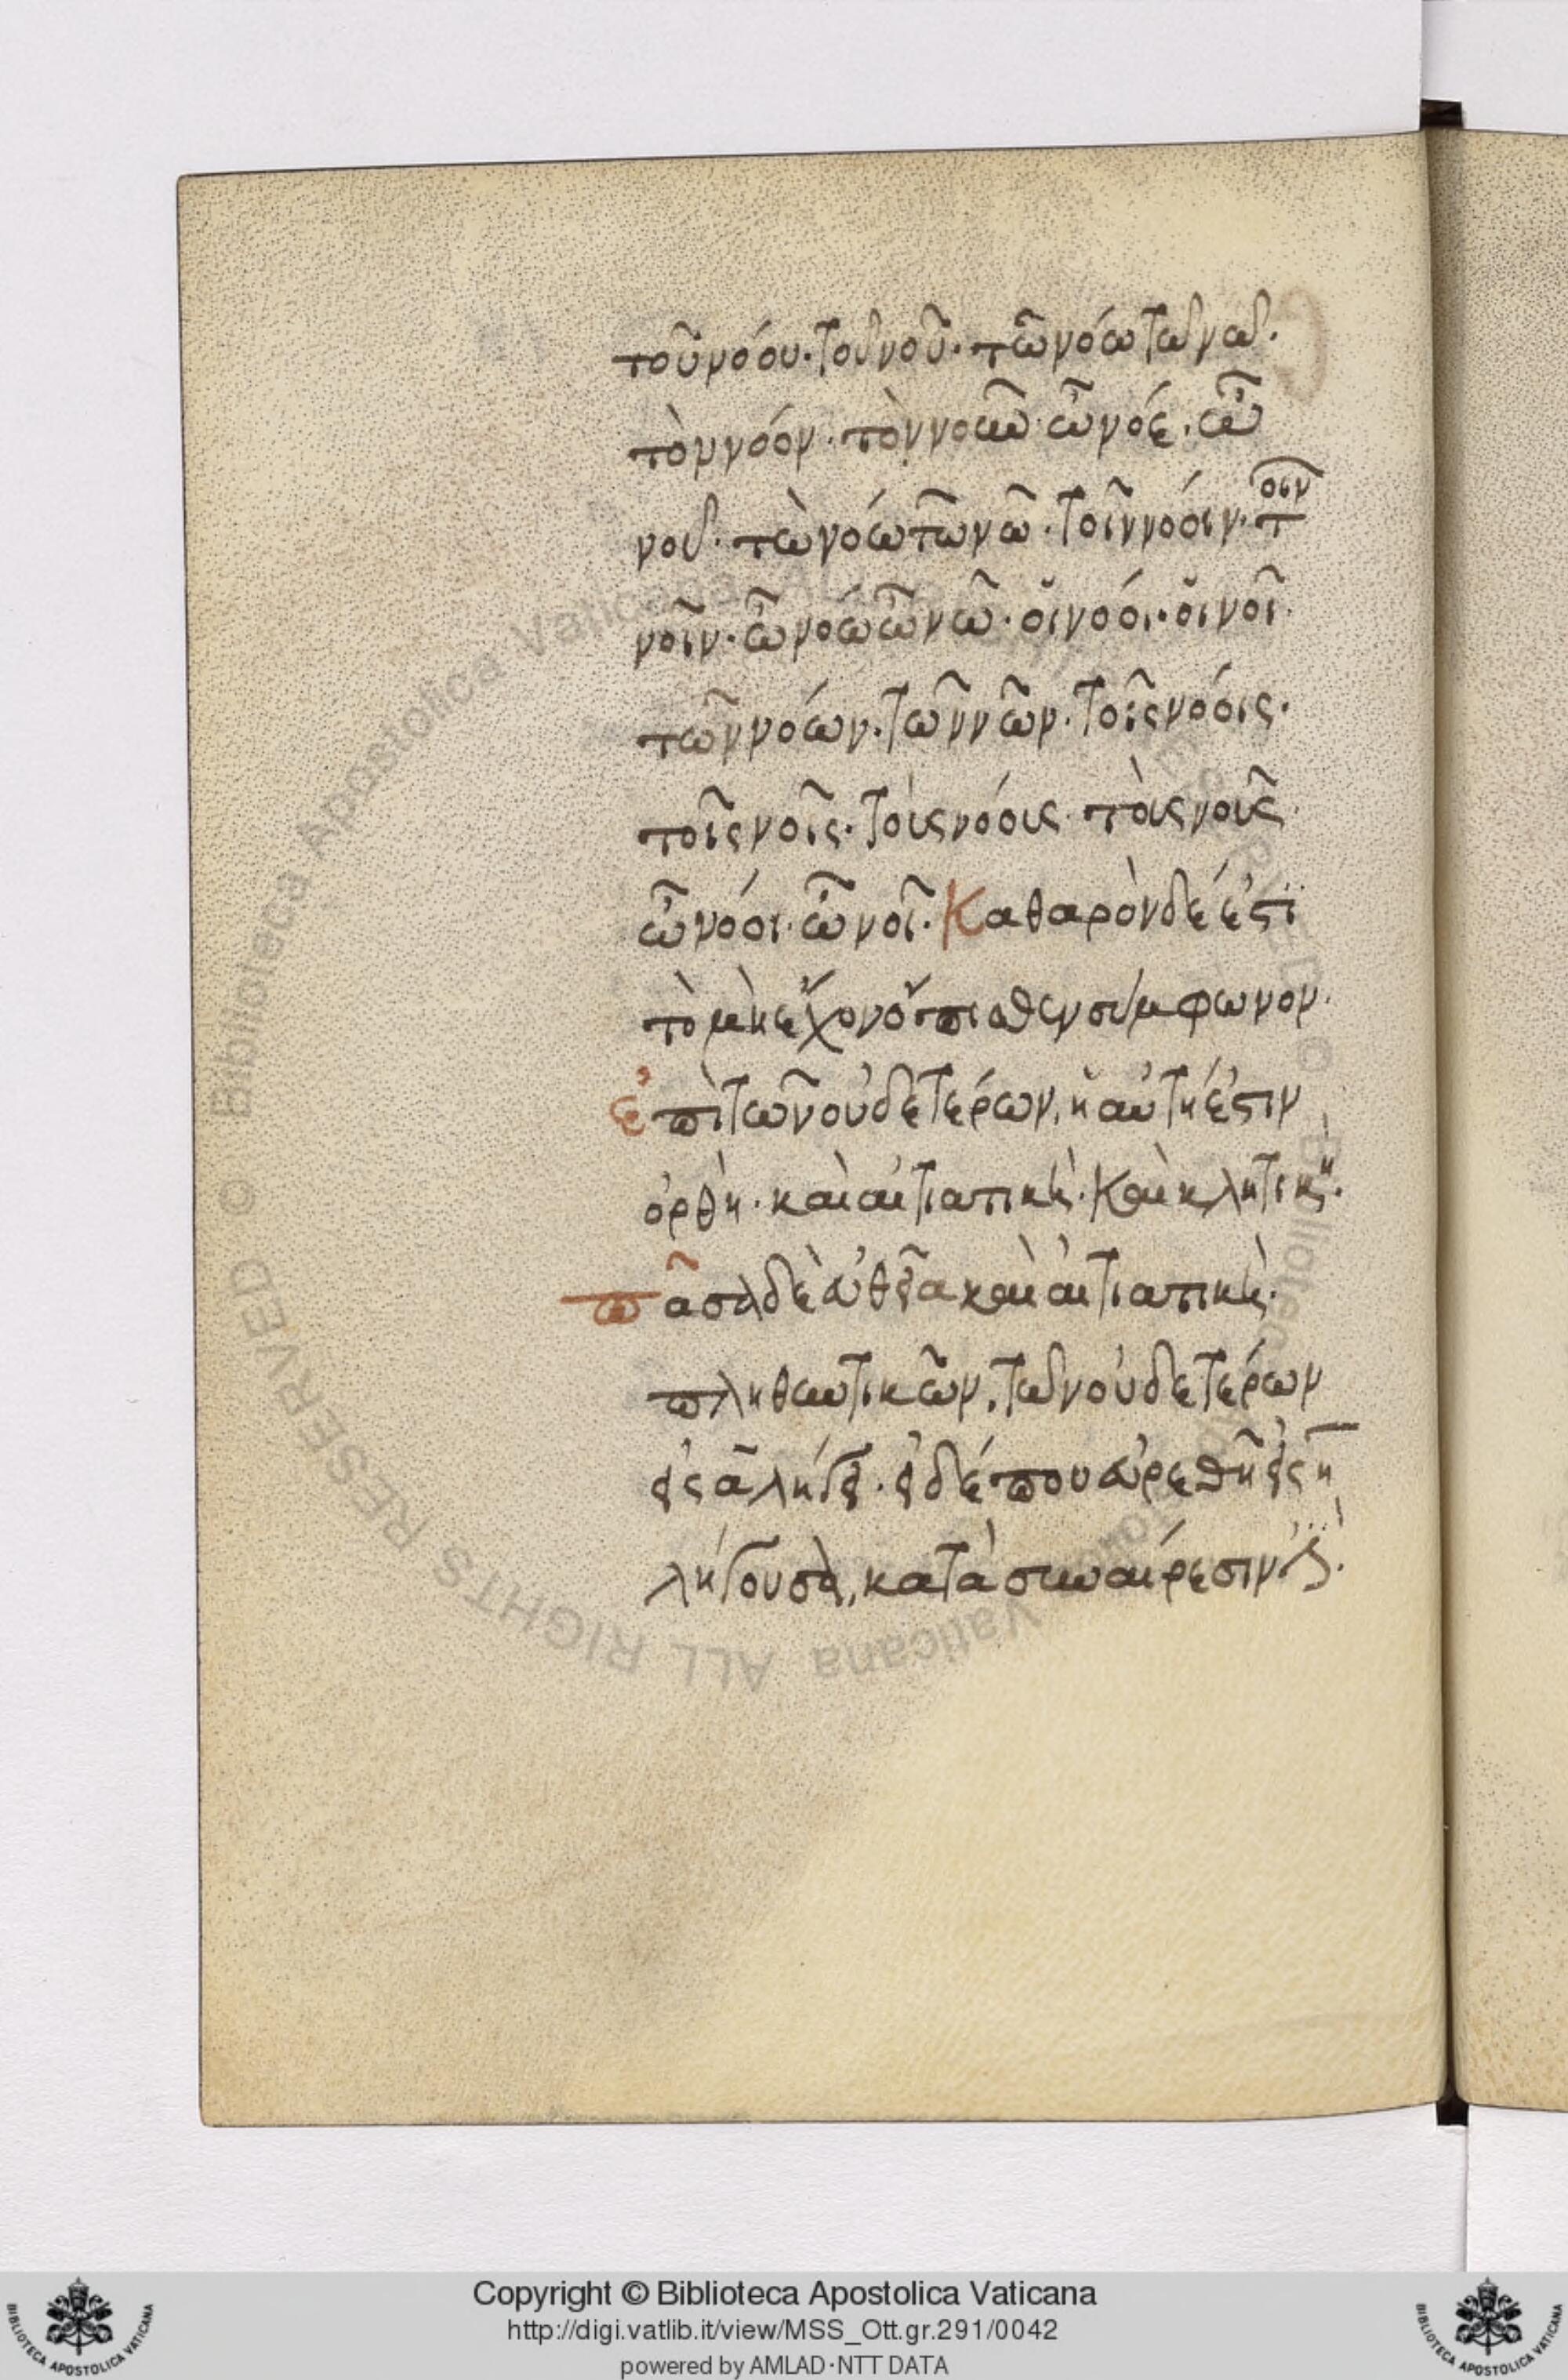 τοῦ νόου· τοῦ νοῦ· τῶ νόω τῶ νῶ·
τὸν νόον· τὸν νοῦν· ὦ νόε· ὦ
νοῦ· τὼ νόω τὼ νῶ· τοῖν νόοιν· τοῖν
νοῖν· ὦ νόω ὦ νῶ· οἱ νόοι· οἱ νοῖ·
τῶν νόων· τῶν νῶν· τοῖς νόοις·
τοῖς νοῖς· τοὺς νόους· τοὺς νοῦς·
ὦ νόοι· ὦ νοῖ· Καθαρὸν δέ ἐστι
τὸ μὴ ἔχον ὄπισθεν σύμφωνον·
ἐπὶ τῶν οὐδετέρων, ἡ αὐτή ἐστιν
ὀρθὴ· καὶ αἰτιατικὴ· καὶ κλητικὴ·
πᾶσα δὲ εὐθεῖα καὶ αἰτιατικὴ·
πληθυντικῶν, τῶν οὐδετέρων
εἰς α λήγει· εἰ δέ που εὑρεθῆ εἰς η
λήγουσα, κατὰ συναίρεσίν ἐστι·
Copyright © Biblioteca Apostolica Vaticana
http://digi.vatlib.it/view/MSS_Ott.gr.291/0042
powered by AMLAD·NTT DATA